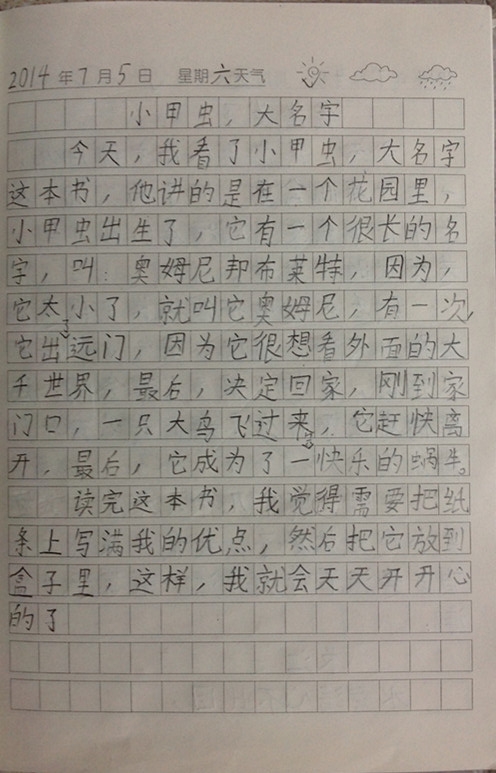 2014年7月5日 星期六天气
小甲虫，大名字
今天，我看了小甲虫，大名字
这本书，他讲的是在一个花园里，
小甲虫出生了，它有一个很长的名
字，叫：奥姆尼邦布莱特，因为，
它太小了，就叫它奥姆尼，有一次，
它出了远门，因为它很想看外面的大
千世界，最后，决定回家，刚到家
门口，一只大鸟飞过来了，它赶快离
开，最后，它成为了一快乐的蜗牛。
读完这本书，我觉得需要把纸
条上写满我的优点，然后把它放到
盒子里，这样，我就会天天开开心
的了